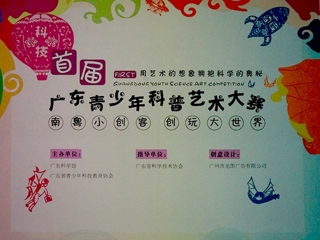 科技
首届
FIRST 用艺术的想象拥抱科学的奥秘
GUANGDONG YOUTH SCIENCE ART COMPETITION
广东青少年科普艺术大赛
南粤小创客 创玩大世界
主办单位: 指导单位: 创意设计:
广东科学馆 广东省科学技术协会
广东省青少年科技教育协会